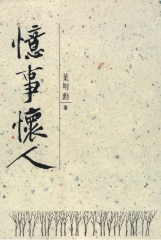 憶事懷人
葉明勳
著